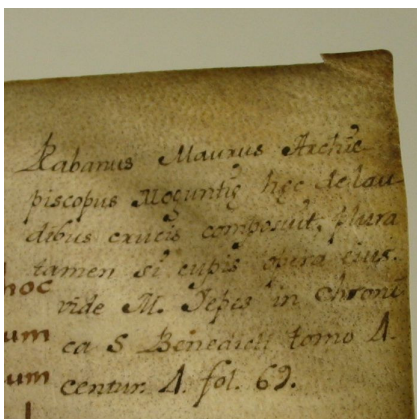 Rabanus Maurus Archie
piscopus Moguntię hęc de lau
dibus crucis composuit, plura
tamen si cupis opera eius.
hoc
vide M. Iepis in Chroni
um
ca S Benedicti tomo 4.
um
centur. 4. fol. 69.